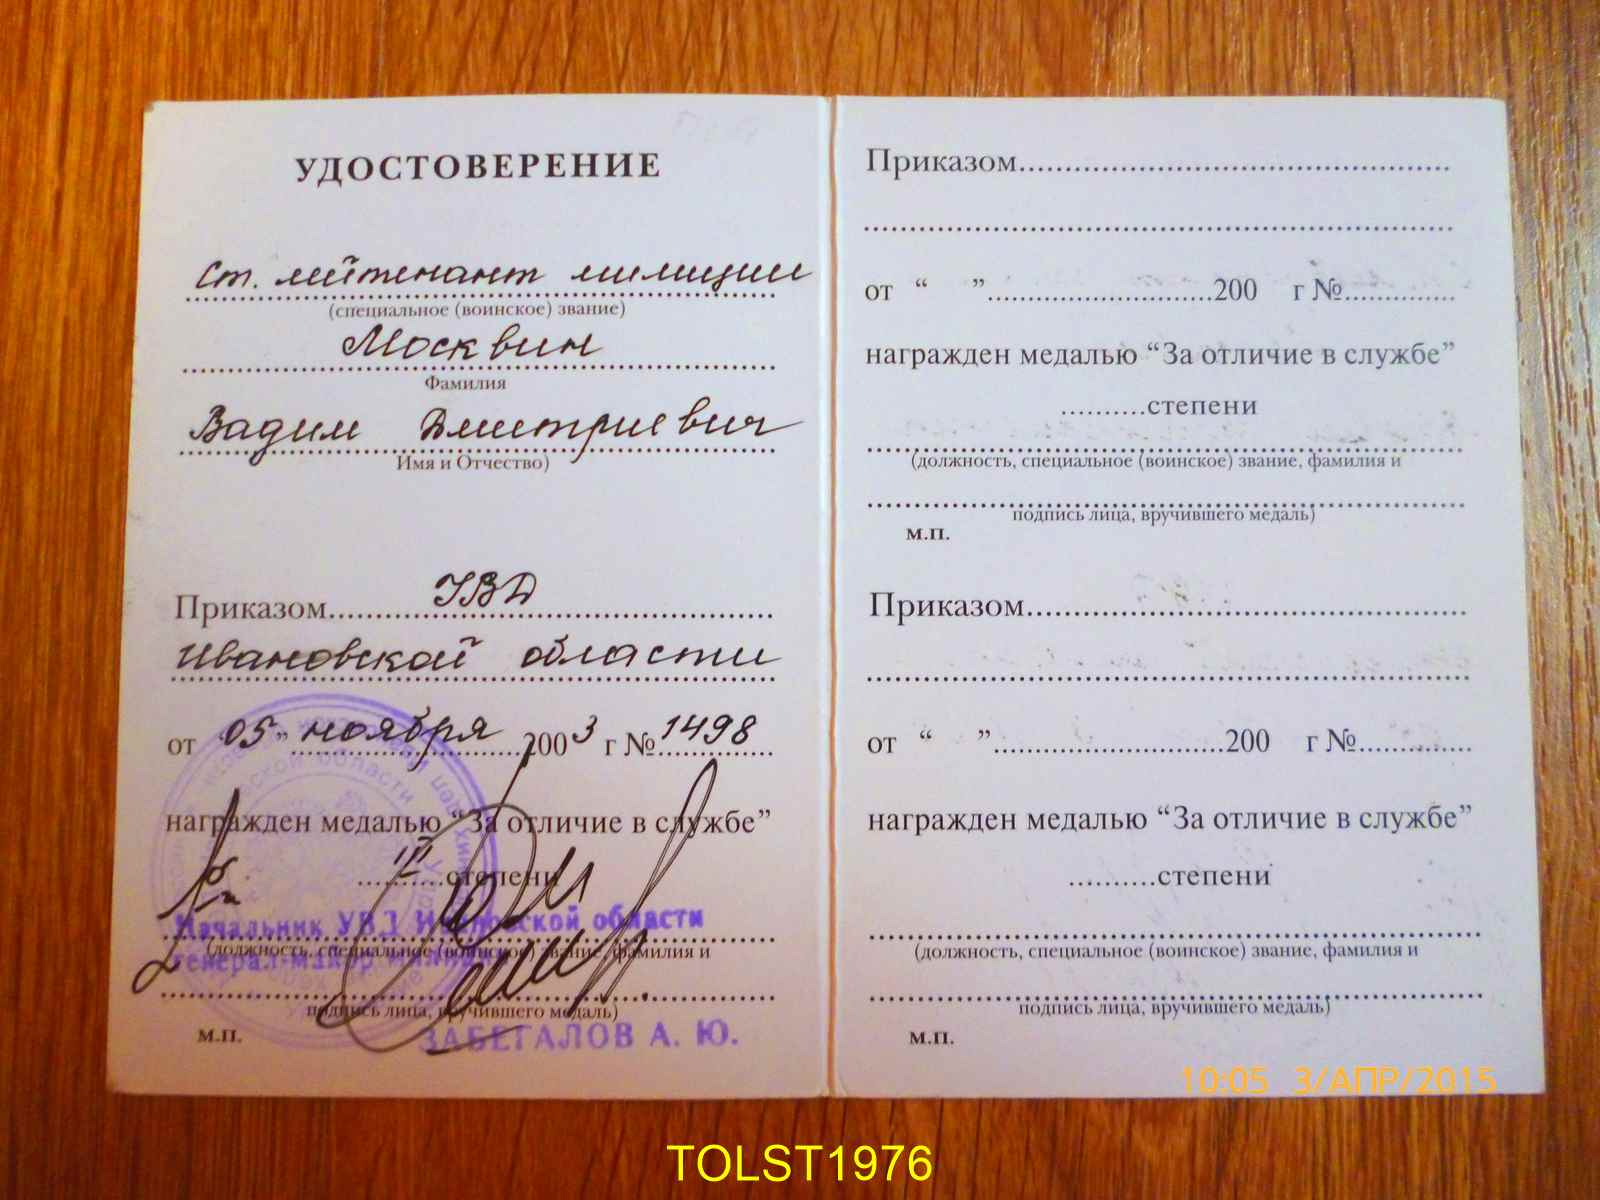 УДОСТОВЕРЕНИЕ
Ст. лейтенант милиции
(специальное (воинское) звание)
Москвин
Фамилия
Вадим Дмитриевич
Имя и Отчество)
Приказом УВД
Ивановской области
от “05” ноября 2003 г № 1498
награжден медалью “За отличие в службе”
III степени
Начальник УВД Ивановской области
(должность, специальное (воинское) звание, фамилия и
генерал-майор милиции
подпись лица, вручившего медаль)
м.п.
ЗАБЕГАЛОВ А. Ю.
Приказом
от “ ” 200 г №
награжден медалью “За отличие в службе”
степени
(должность, специальное (воинское) звание, фамилия и
подпись лица, вручившего медаль)
м.п.
Приказом
от “ ” 200 г №
награжден медалью “За отличие в службе”
степени
(должность, специальное (воинское) звание, фамилия и
подпись лица, вручившего медаль)
м.п.
10:05 3/АПР/2015
TOLST1976